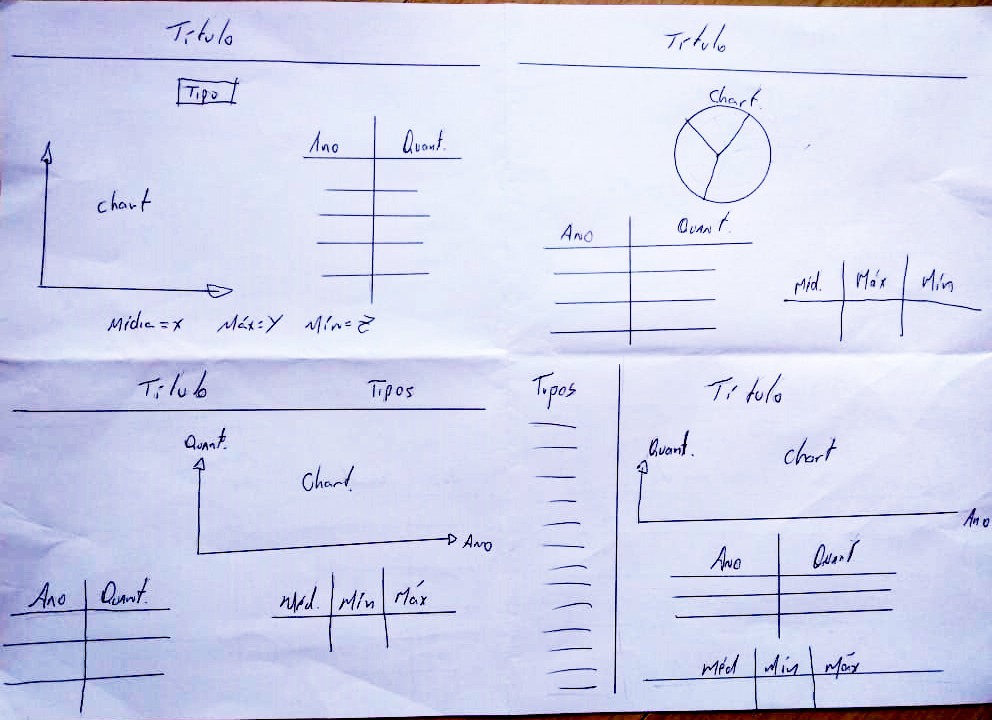 Título
Tipo
Ano Quant.
Chart
Média = X Máx = Y Mín = Z
Título
Chart.
Ano Quant.
Méd. Máx Mín
Título Tipos
Quant.
Chart.
Ano
Ano Quant.
Méd. Mín Máx
Tipos
Título
Quant.
Chart
Ano
Ano Quant
Méd Mín Máx